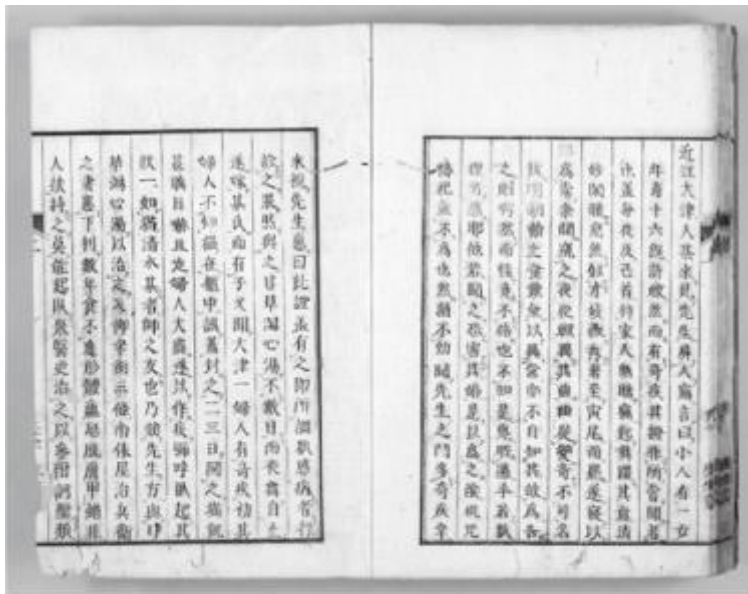 近江大津人某來見先生屏人竊言曰小人有一女
年甫十六既許嫁然而有奇疾其證非所嘗聞者
也盖每夜及待家人熟眠竊起舞躍其曲清
妙閑雅宛然似才妓最秀者至寅尾而罷遂寢以
爲常余間窺之夜從輙異其曲曲從變奇不可名
狀明朝動止食飲無以異常亦不自知其故爲告
之則愕然而怪竟不信也不知是鬼所憑乎若狐
狸所惑耶他若聞之恐害其婚是以爲之陰祝咒
禱祀無不爲也然猶不効聞先生之門多奇疾幸
來視先生應曰此證盖有之即所謂狐惑病者
診之果然與之甘草瀉心湯不數日而夜舞自止
遂嫁某氏而有子又聞大津一婦人有奇疾初其
婦人不知猫在中誤蓋封之二三日開之猫飢
甚瞋目嚇且走婦人大駭遂以作疾號呼臥起其
狀一如猫清水某者師之友也乃效先生方與甘
草瀉心湯以治之又御幸街三條南俵屋治兵衞
之妻患下利數年食不進形體尪羸肌膚甲錯非
人扶持之莫能起臥衆醫更治之以參附訶罌類